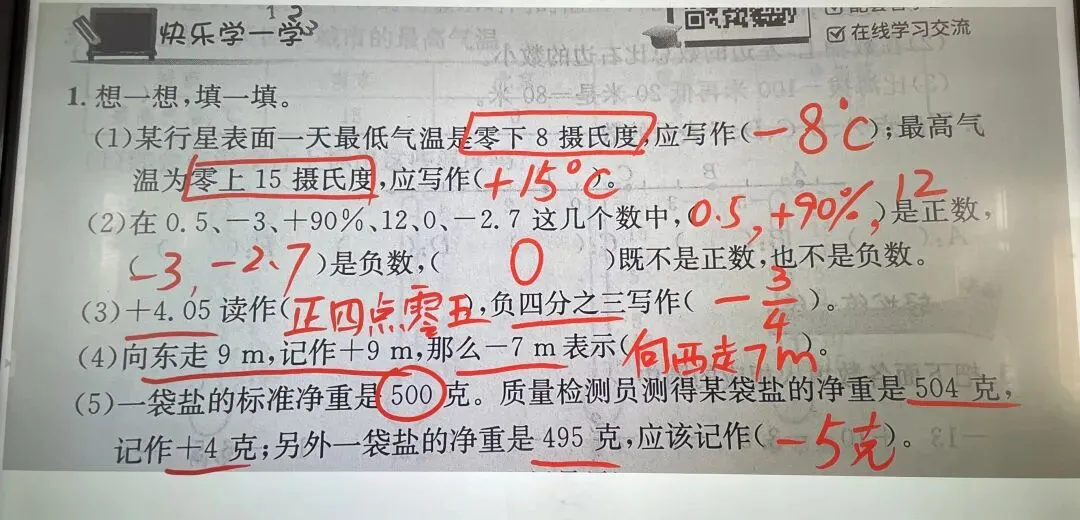 快乐学一学
1 2 3
在线学习交流
1. 想一想，填一填。
(1)某行星表面一天最低气温是零下 8 摄氏度，应写作(－8℃)；最高气
温为零上 15 摄氏度，应写作(＋15℃)。
(2)在 0.5、－3、＋90%、12、0、－2.7 这几个数中，(0.5，＋90%，12)是正数，
(－3，－2.7)是负数，( 0 )既不是正数，也不是负数。
(3)＋4.05 读作(正四点零五)，负四分之三写作(－3/4)。
(4)向东走 9 m，记作＋9 m，那么－7 m 表示(向西走7m)。
(5)一袋盐的标准净重是 500 克。质量检测员测得某袋盐的净重是 504 克，
记作＋4 克；另外一袋盐的净重是 495 克，应该记作(－5克)。